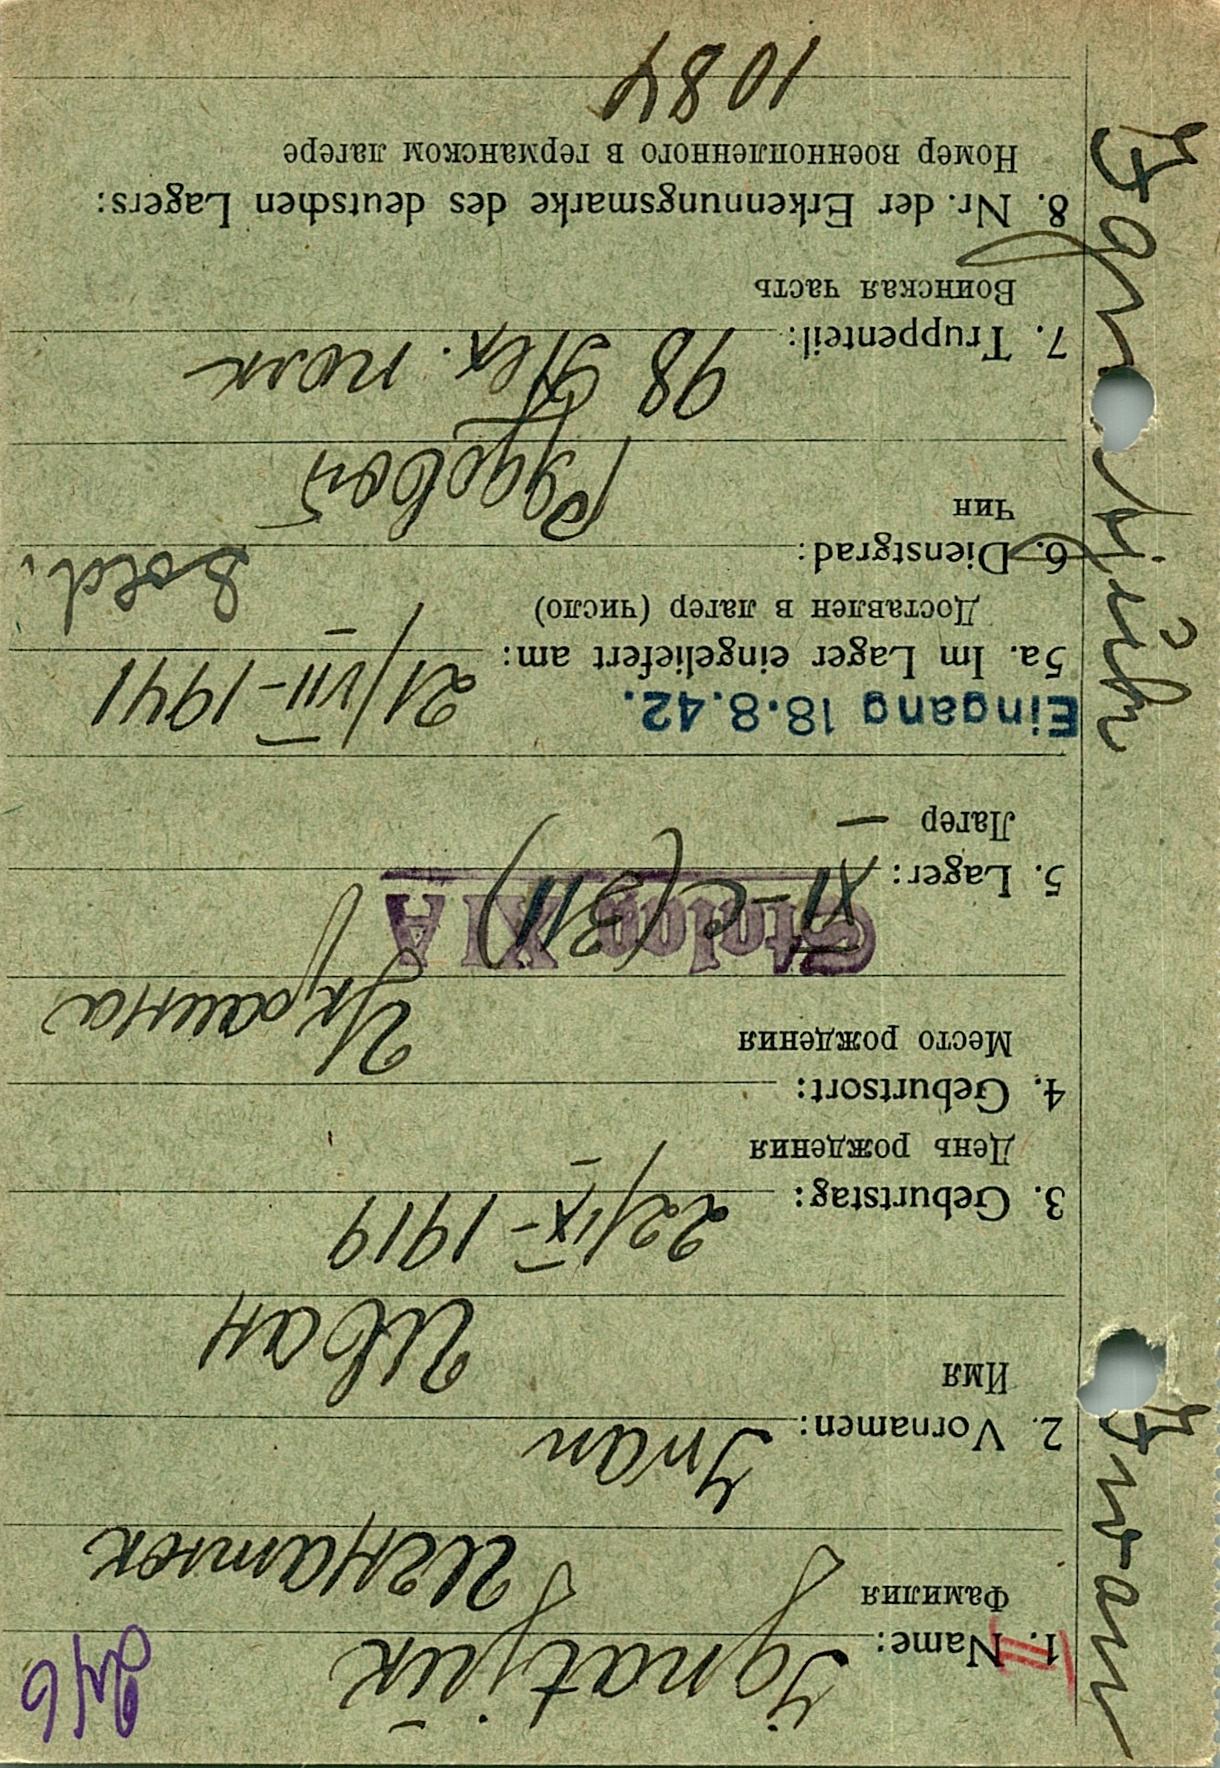 246
1. Name: Ignatjuk
Фамилия Игнатюк
2. Vornamen: Iwan
Имя Иван
3. Geburtstag: 22/IX-1919
День рождения
4. Geburtsort:
Место рождения Украина
5. Lager: XI-C (311)
Stalag XI A
Лагерь –
Eingang 18.8.42.
5a. Im Lager eingeliefert am: 21/VII-1941
Доставлен в лагерь (число)
6. Dienstgrad: Sold.
Чин Рядовой
7. Truppenteil: 98 полк
Воинская часть
8. Nr. der Erkennungsmarke des deutschen Lagers:
Номер военнопленного в германском лагере
1084
Ignatjuk
Iwan